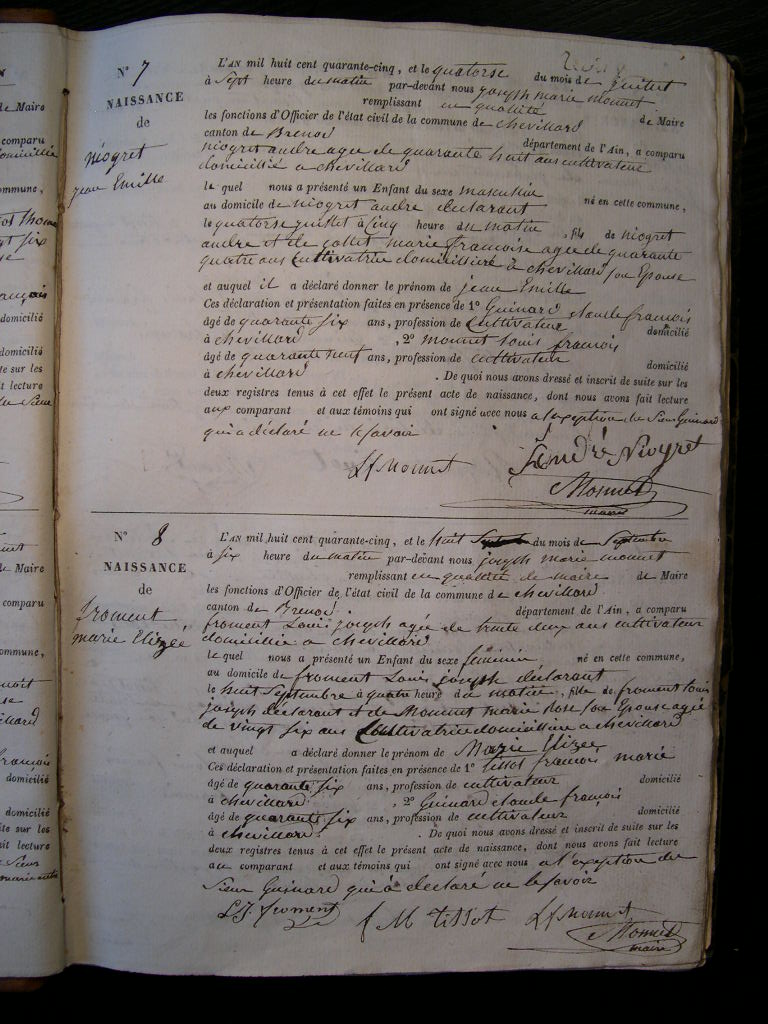 N
de Maire
comparu
domicilié
commune,
domicilié
domicilié
te sur les
it lecture
N° 7
NAISSANCE
de
niogret
jean Emille
L'AN mil huit cent quarante-cinq, et le quatorse du mois de juillet
à Sept heure du matin par-devant nous joseph marie monnet
remplissant en qualité de Maire
les fonctions d'Officier de l'état civil de la commune de chevillard
canton de Brenod département de l'Ain, a comparu
niogret andre age de quarante huit ans cultivateur
domicillié a chevillard
le quel nous a présenté un Enfant du sexe masculin
au domicile de niogret andre declarant né en cette commune,
le quatorse juillet à Cinq heure du matin, fils de niogret
andre et de gottet marie francoise agee de quarante
quatre ans Cultivatrice domicilliére à chevillard son Epouse
et auquel il a déclaré donner le prénom de jean Emille
Ces déclaration et présentation faites en présence de 1° Guinard claude francois
âgé de quarante six ans, profession de Cultivateur domicilié
à chevillard, 2° monnet louis francois
âgé de quarante neuf ans, profession de cultivateur domicilié
à chevillard. De quoi nous avons dressé et inscrit de suite sur les
deux registres tenus à cet effet le présent acte de naissance, dont nous avons fait lecture
aux comparant et aux témoins qui ont signé avec nous a l'exception du Sieur Guinard
qui a déclaré ne le savoir
Lf Monnet André Niogret
Monnet
maire
N° 8
NAISSANCE
de
froment
marie Elizée
L'AN mil huit cent quarante-cinq, et le huit du mois de Septembre
à six heure du matin par-devant nous joseph marie monnet
remplissant en qualité de maire de Maire
les fonctions d'Officier de l'état civil de la commune de chevillard
canton de Brenod. département de l'Ain, a comparu
froment Louis joseph agée de trente deux ans cultivateur
domicillié a chevillard
le quel nous a présenté un Enfant du sexe féminin né en cette commune,
au domicile de froment Louis joseph déclarant
le huit Septembre à quatre heure du matin, fille de froment louis
joseph déclarant et de Monnet marie rose son Epouse agée
de vingt six ans Cultivatrice domicilliere a chevillard
et auquel a déclaré donner le prénom de Marie Elizee
Ces déclaration et présentation faites en présence de 1° tissot francois marie
âgé de quarante six ans, profession de cultivateur domicilié
à chevillard, 2° Guinard claude francois
âgé de quarante six ans, profession de cultivateur domicilié
à chevillard. De quoi nous avons dressé et inscrit de suite sur les
deux registres tenus à cet effet le présent acte de naissance, dont nous avons fait lecture
au comparant et aux témoins qui ont signé avec nous a l'exception du
Sieur Guinard qui à declaré ne le savoir
L J. froment f M tissot Lf Monnet
Monnet
maire